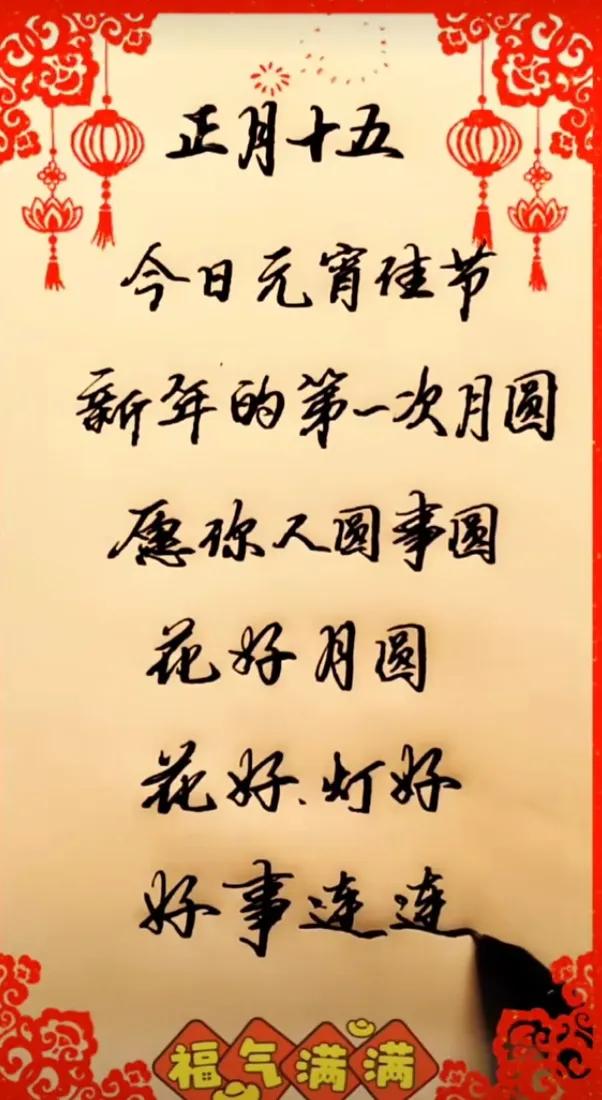 正月十五
今日元宵佳节
新年的第一次月圆
愿你人圆事圆
花好月圆
花好、灯好
好事连连
福气满满